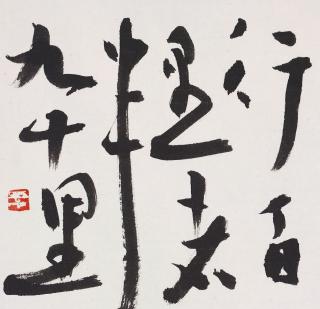 行百
里者
半
九十里